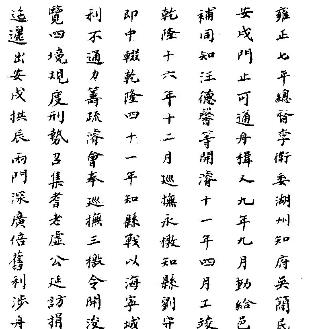 雍正七年總督李衛委湖州知府吳簡民
安戍門止可通舟楫又九年九月動給邑
補同知汪德馨等開濬十一年四月工竣
乾隆十六年十二月巡撫永檄知縣劉守
即中輟乾隆四十一年知縣戰以海寧城
利不通力籌疏濬會奉巡撫三檄令開浚
覽四境規度刑勢召集耆老虛公延訪捐
迤邐出安戍拱辰兩門深廣倍舊利涉舟